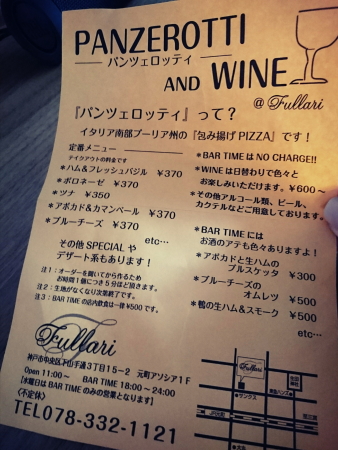 PANZEROTTI
パンツェロッティ
AND WINE
@ Fullari
『パンツェロッティ』って？
イタリア南部プーリア州の『包み揚げPIZZA』です！
定番メニュー
テイクアウトの料金です
＊ハム&フレッシュバジル ¥370
＊ボロネーゼ ¥370
＊ツナ ¥350
＊アボカド&カマンベール ¥370
＊ブルーチーズ ¥370
etc…
その他SPECIALや
デザート系もあります！
注1：オーダーを聞いてから作るため
お時間1個につき5分ほど頂きます。
注2：生地がなくなり次第終了です。
注3：BAR TIMEの店内飲食は一律¥500です。
＊BAR TIMEはNO CHARGE!!
＊WINEは日替わりで色々と
お楽しみいただけます。¥600～
＊その他アルコール類、ビール、
カクテルなどご用意しております。
＊BAR TIMEには
お酒のアテも色々ありますよ！
＊アボカドと生ハムの
ブルスケッタ ¥300
＊ブルーチーズの
オムレツ ¥500
＊鴨の生ハム&スモーク ¥500
etc…
Fullari
神戸市中央区下山手通3丁目15－2 元町アソシア1F
Open 11:00～ BAR TIME 18:00～24:00
【水曜日はBAR TIMEのみの営業となります】
〈不定休〉
TEL078-332-1121
Fullari
サンクス
東急ハンズ
大丸